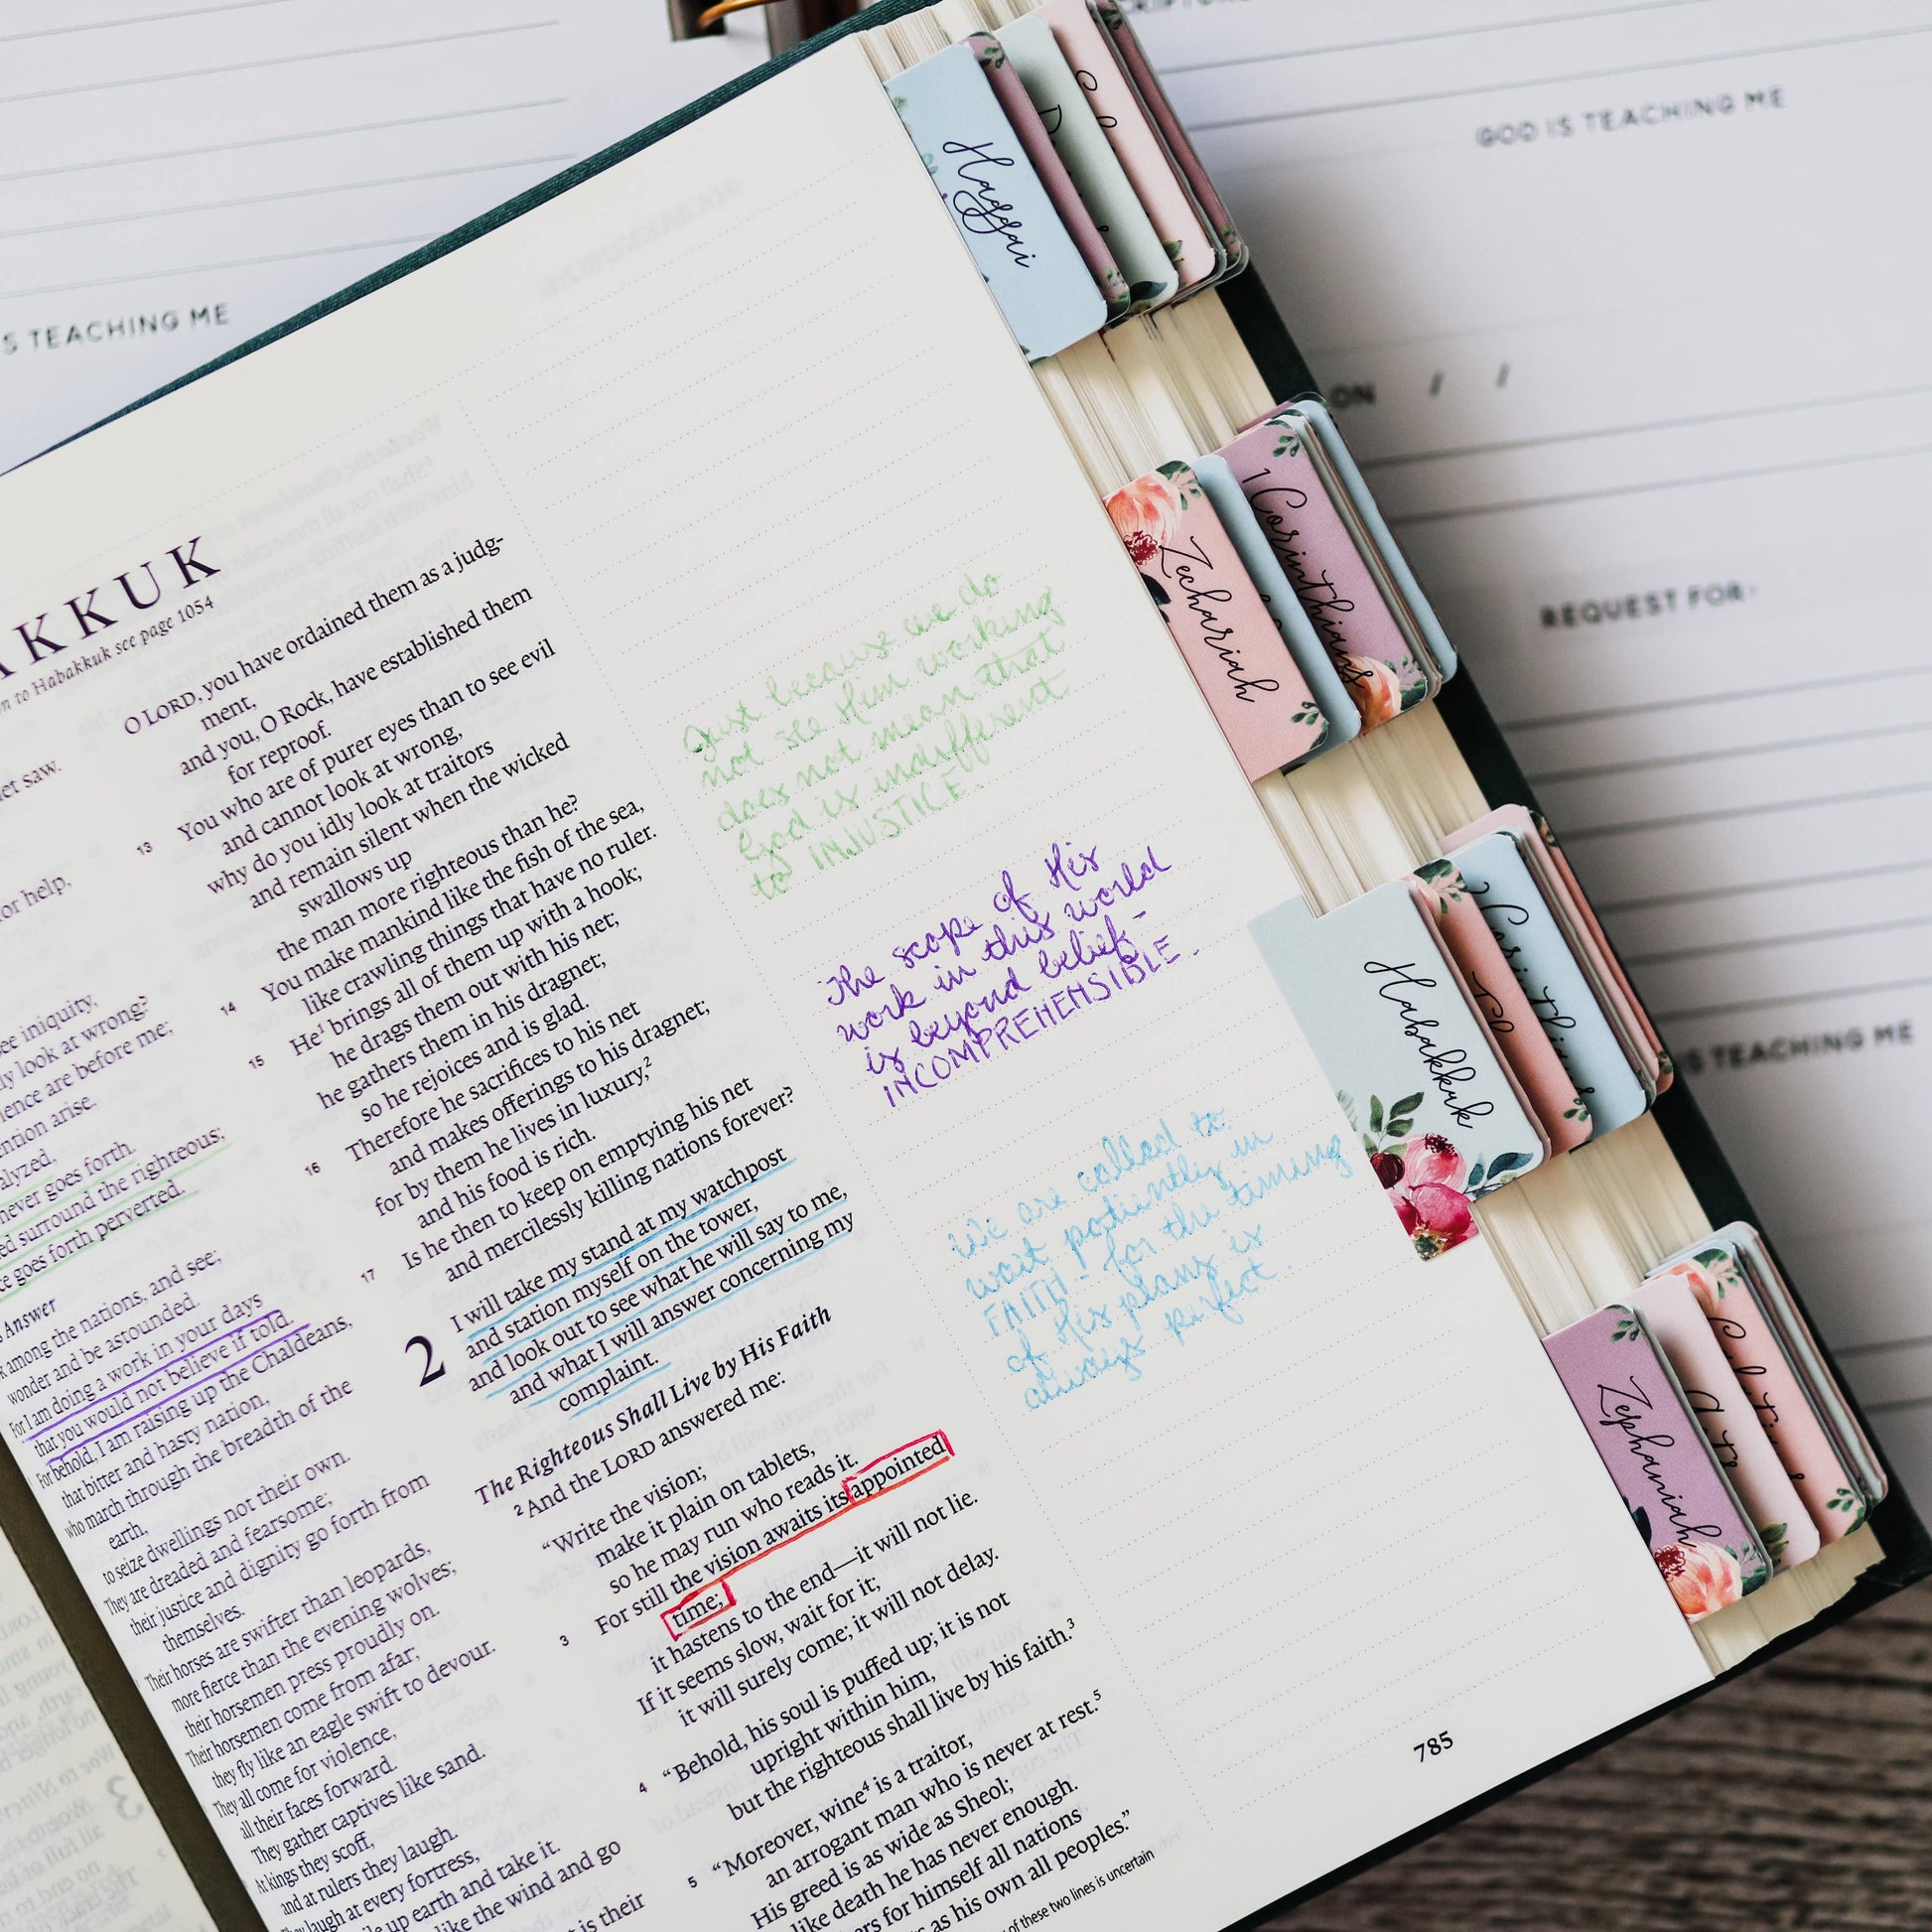 SCRIPTURE
GOD IS TEACHING ME
S TEACHING ME
ON / /
REQUEST FOR:
IS TEACHING ME
AKKUK
n to Habakkuk see page 1054
et saw.
or help,
see iniquity,
ly look at wrong?
lence are before me;
ention arise.
alyzed,
never goes forth.
ed surround the righteous;
ce goes forth perverted.
Answer
k among the nations, and see;
wonder and be astounded.
For I am doing a work in your days
that you would not believe if told.
For behold, I am raising up the Chaldeans,
that bitter and hasty nation,
who march through the breadth of the
earth,
to seize dwellings not their own.
They are dreaded and fearsome;
their justice and dignity go forth from
themselves.
Their horses are swifter than leopards,
more fierce than the evening wolves;
their horsemen press proudly on.
Their horsemen come from afar;
they fly like an eagle swift to devour.
They all come for violence,
all their faces forward.
They gather captives like sand.
At kings they scoff,
and at rulers they laugh.
They laugh at every fortress,
le up earth and take it.
like the wind and go
t is their
O LORD, you have ordained them as a judg-
ment,
and you, O Rock, have established them
for reproof.
13 You who are of purer eyes than to see evil
and cannot look at wrong,
why do you idly look at traitors
and remain silent when the wicked
swallows up
the man more righteous than he?
14 You make mankind like the fish of the sea,
like crawling things that have no ruler.
15 He¹ brings all of them up with a hook;
he drags them out with his net;
he gathers them in his dragnet;
so he rejoices and is glad.
16 Therefore he sacrifices to his net
and makes offerings to his dragnet;
for by them he lives in luxury,²
and his food is rich.
17 Is he then to keep on emptying his net
and mercilessly killing nations forever?
2 I will take my stand at my watchpost
and station myself on the tower,
and look out to see what he will say to me,
and what I will answer concerning my
complaint.
The Righteous Shall Live by His Faith
² And the LORD answered me:
“Write the vision;
make it plain on tablets,
so he may run who reads it.
3 For still the vision awaits its appointed
time;
it hastens to the end—it will not lie.
If it seems slow, wait for it;
it will surely come; it will not delay.
4 “Behold, his soul is puffed up; it is not
upright within him,
but the righteous shall live by his faith.³
5 “Moreover, wine⁴ is a traitor,
an arrogant man who is never at rest.⁵
His greed is as wide as Sheol;
like death he has never enough.
ers for himself all nations
s as his own all peoples.”
of these two lines is uncertain
Just because we do
not see Him working
does not mean that
God is indifferent
to INJUSTICE.
The scope of His
work in this world
is beyond belief -
INCOMPREHENSIBLE.
We are called to
wait patiently in
FAITH - for the timing
of His plans is
always perfect.
785
Haggai
Zechariah
1 Corinthians
Habakkuk
2 Corinthians
Zephaniah